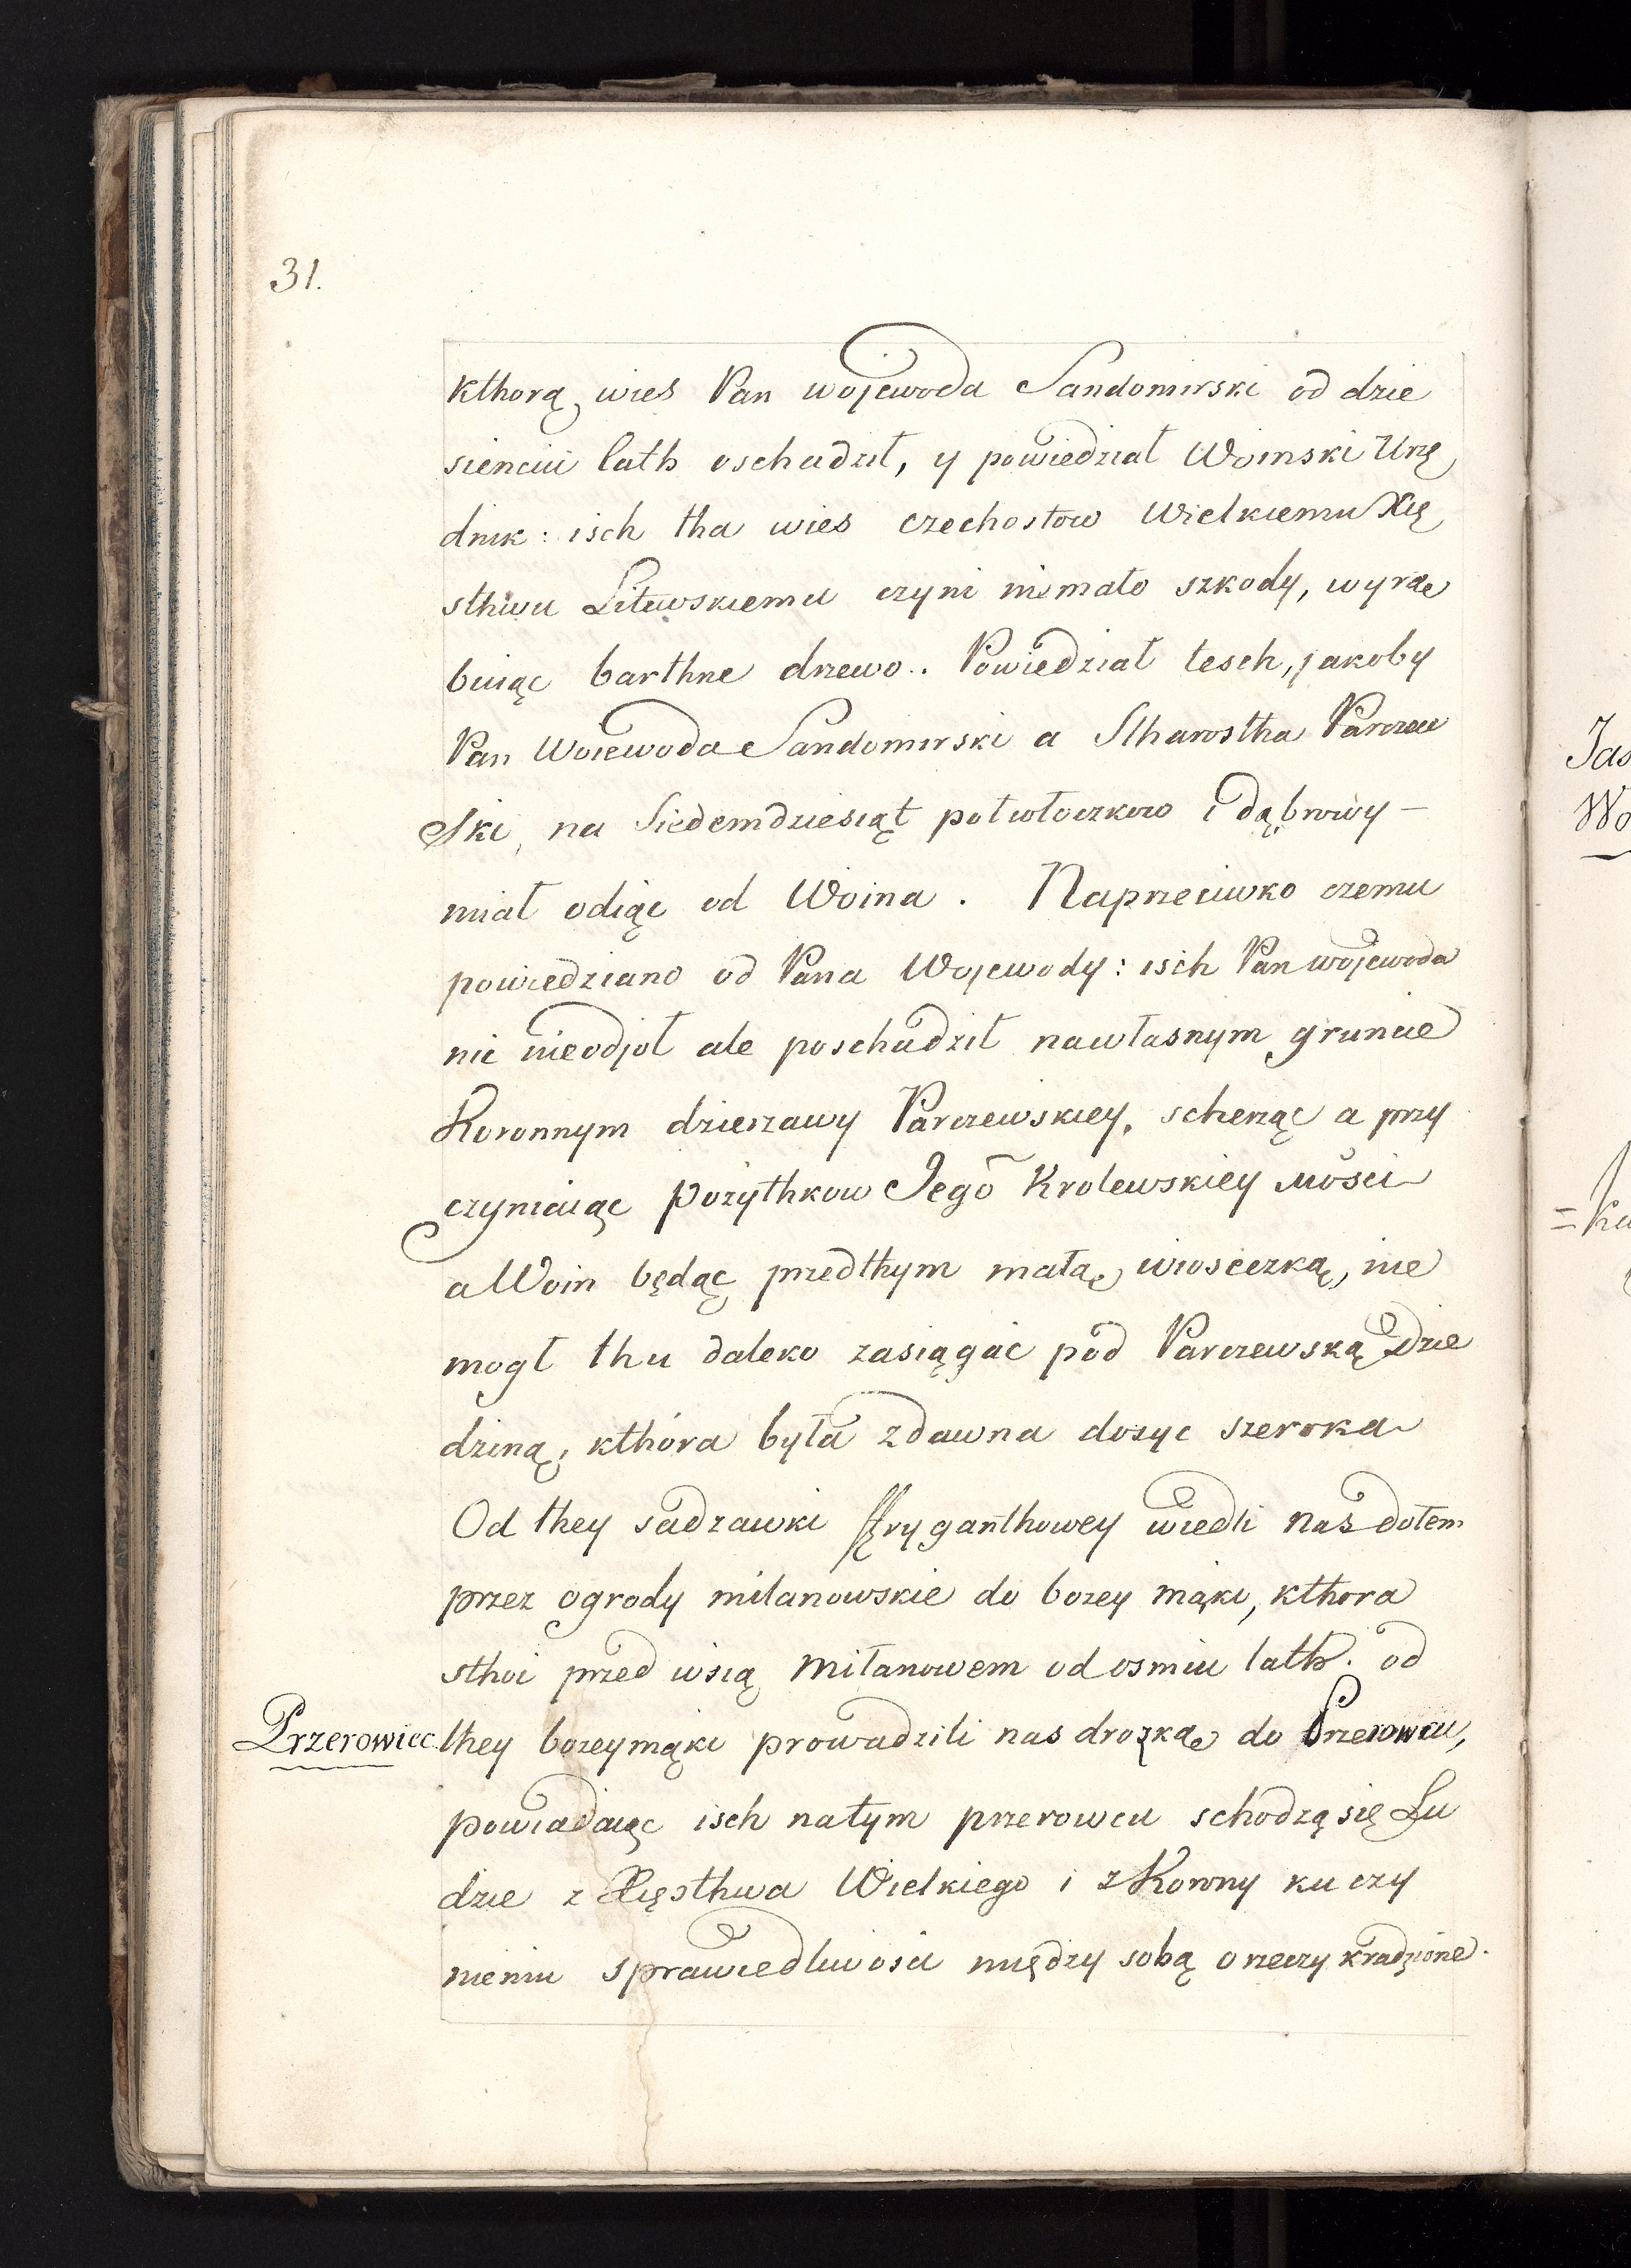 31.
kthorą wies Pan wojewoda Sandomirski od dzie
sienciu lath oschadził, y powiedział Woinski Urzę
dnik: isch tha wies czechostow Wielkiemu Xię
sthwu Litewskiemu czyni niemało szkody, wyrę
buiąc barthne drzewo.. Powiedział tesch, jakoby
Pan Woiewoda Sandomirski a Stharostha Parczew
ski, na Siedemdziesiąt połwłoczkow i dąbrowy –
miał odiąc od Woina. Naprzeciwko czemu
powiedziano od Pana Wojewody: isch Pan wojewoda
nic nieodjoł ale poschadził nawłasnym gruncie
Koronnym dzierzawy Parczewskiey, scherząc a przy
czyniaiąc pozythkow Jego Krolewskiey Mości
a Woin będąc przedthym małą wiosczką, nie
mogł thu daleko zasiągać pod Parczewską Dzie
dziną, kthóra była zdawna dosyc szeroka
Od they sadzawki wiedli nas dołem
przez ogrody milanowskie do bozey mąki, kthora
sthoi przed wsią Miłanowem od osmiu lath. od
Przerowiec.
they bozeymąki prowadzili nas drozką do Przerowcu,
powiadaiąc isch natym przerowcu schodzą się Lu
dzie z Xięsthwa Wielkiego i z Korony ku czy
nieniu sprawiedliwosci między sobą o rzeczy kradzione.
Jas
Wo
=ku